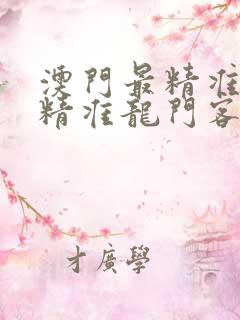 澳門最精准
精准龍門客
才廣學